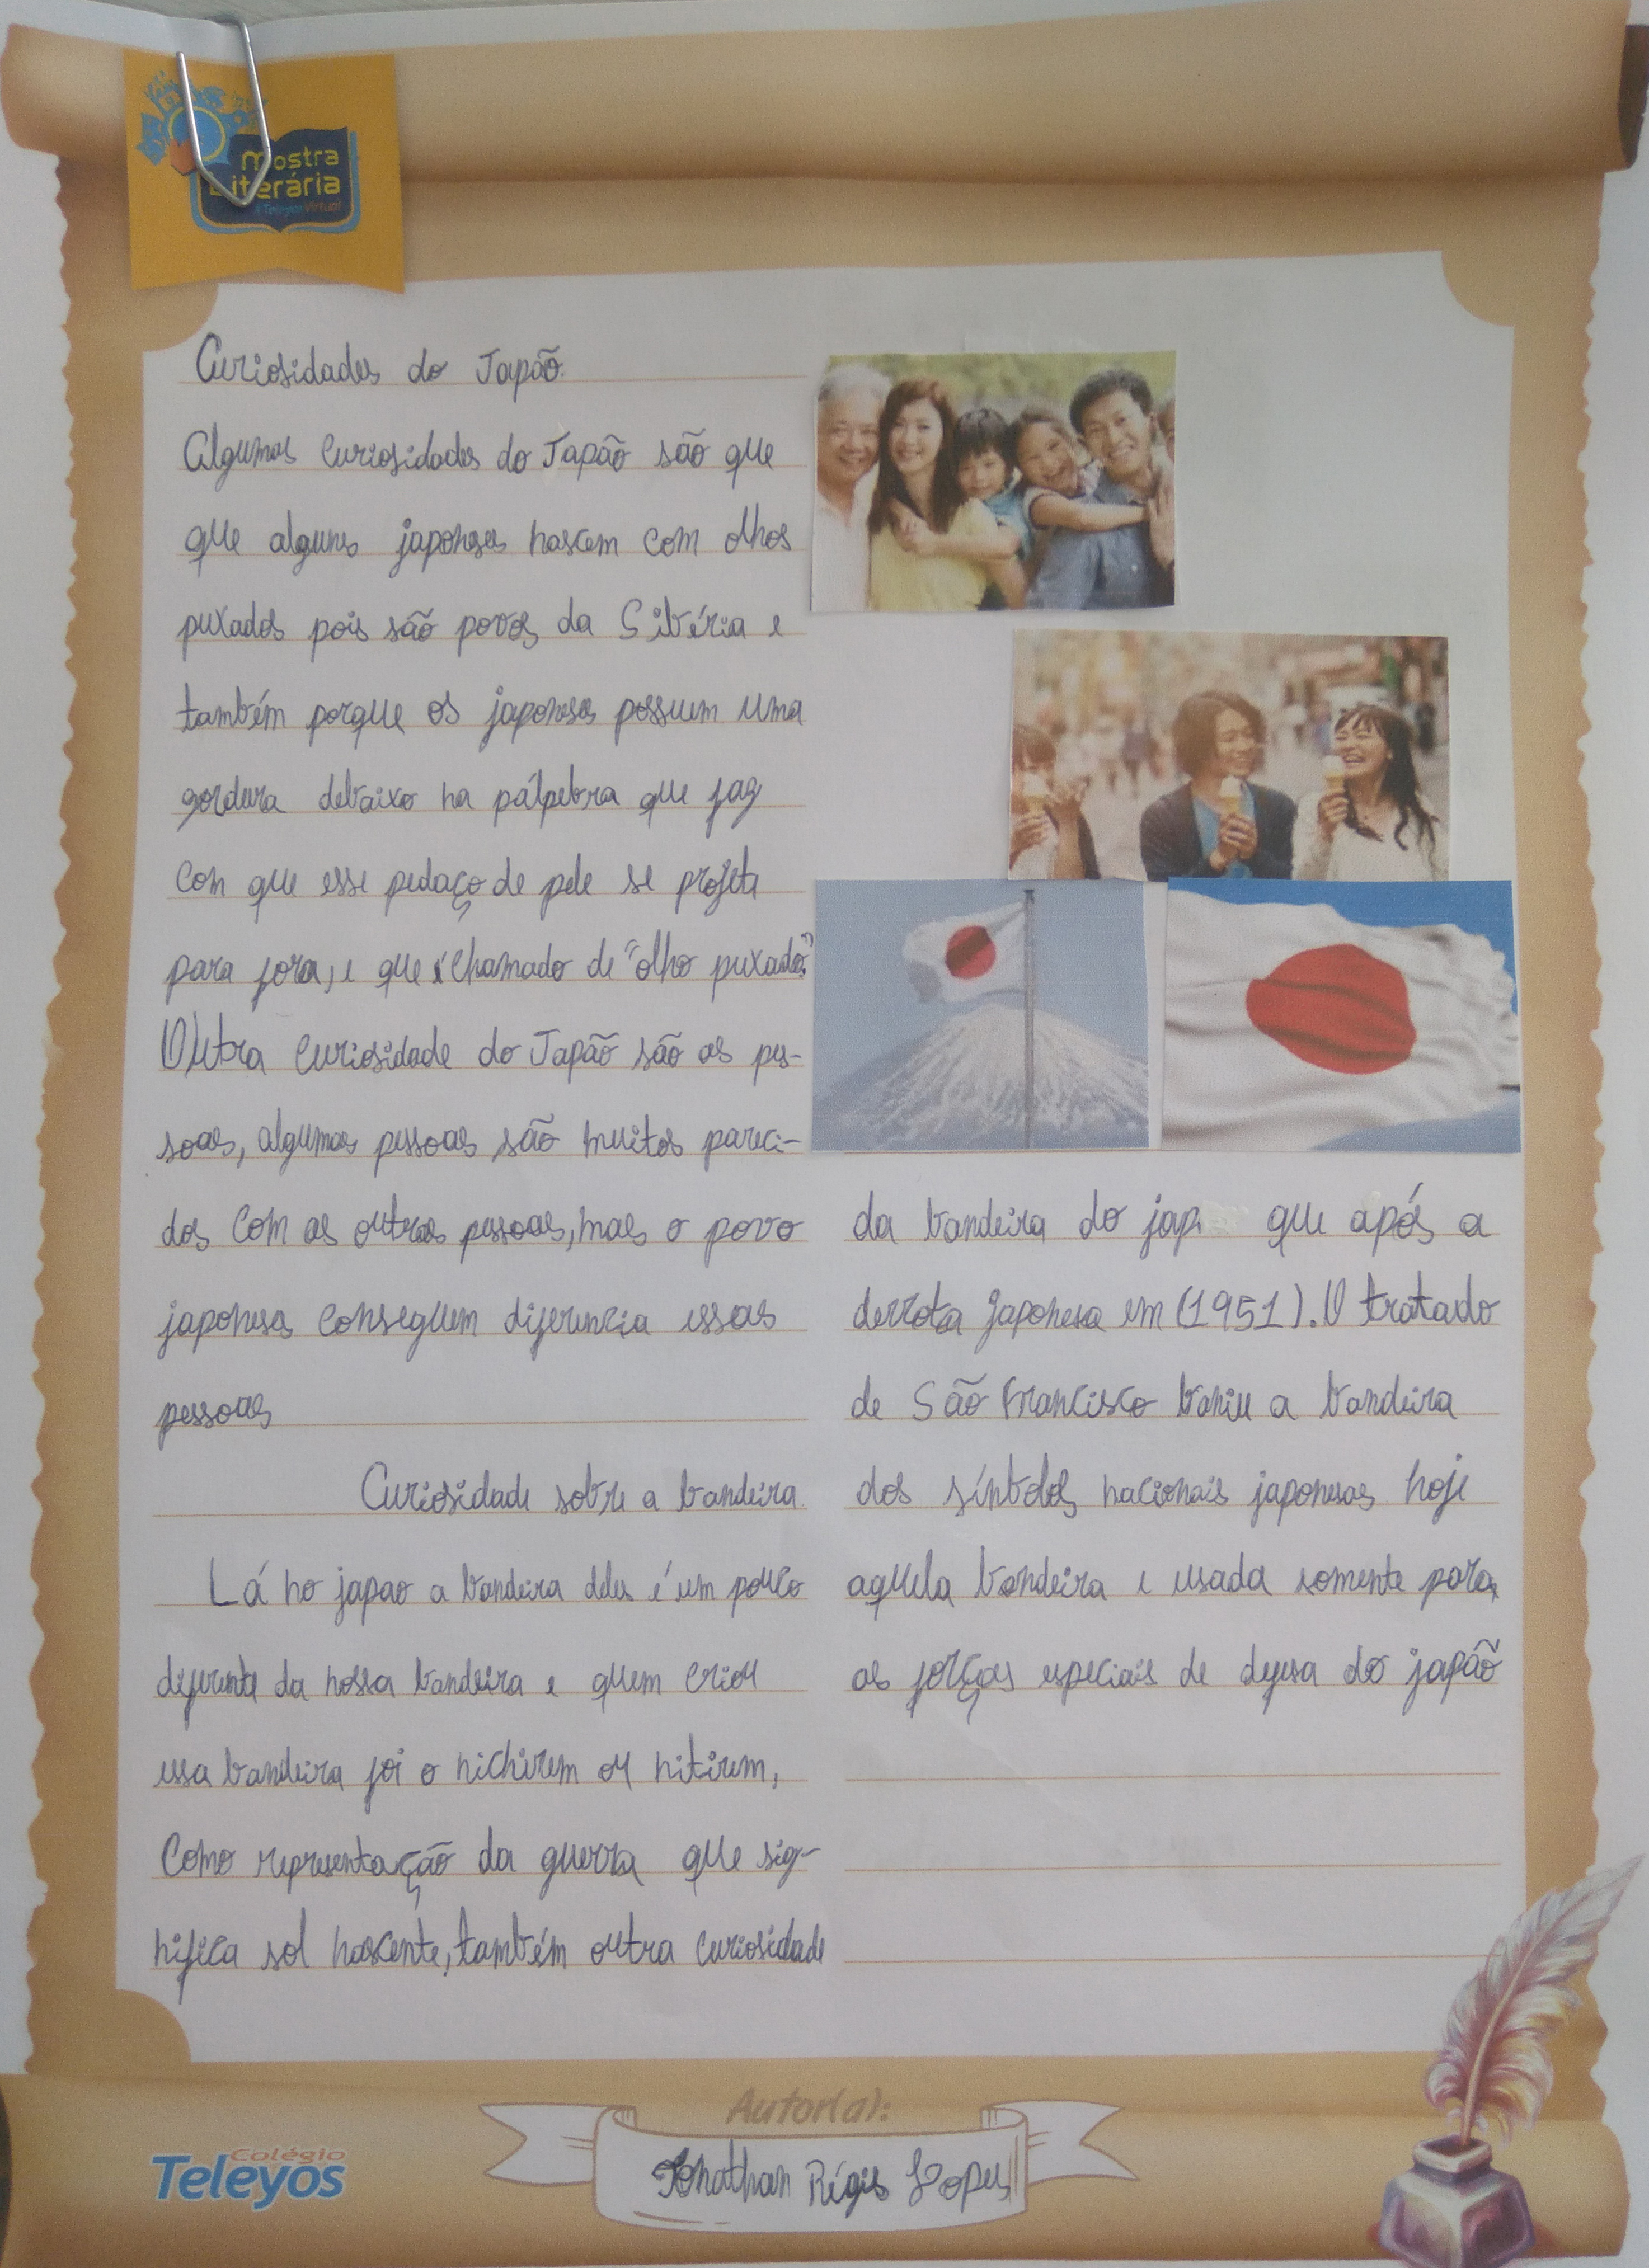 Mostra
Literária
Teleyos Virtual
Curiosidades do Japão
Algumas curiosidades do Japão são que
que alguns japoneses nascem com olhos
puxados pois são povos da Sibéria e
também porque os japoneses possuem uma
gordura debaixo na pálpebra que faz
con que esse pedaço de pele se projeta
para fora, e que é chamado de "olho puxado."
Outra curiosidade do Japão são as pes-
soas, algumas pessoas são muitos pareci-
dos com as outras pessoas, mas o povo
japonesa conseguem diferencia essas
pessoas
Curiosidade sobre a bandeira
Lá no japao a bandeira deles é um pouco
diferente da nossa bandeira e quem criou
essa bandeira foi o nichirem ou nitirem,
como representação da guerra que sig-
nifica sol nascente, também outra curiosidade
da bandeira do jap que após a
derrota japonesa em (1951). O tratado
de São Francisco baniu a bandeira
dos símbolos nacionais japonesas hoje
aquela bandeira e usada somente para
as forças especiais de defesa do japão
Autor(a):
Jonathan Régis Lopes
Colégio
Teleyos